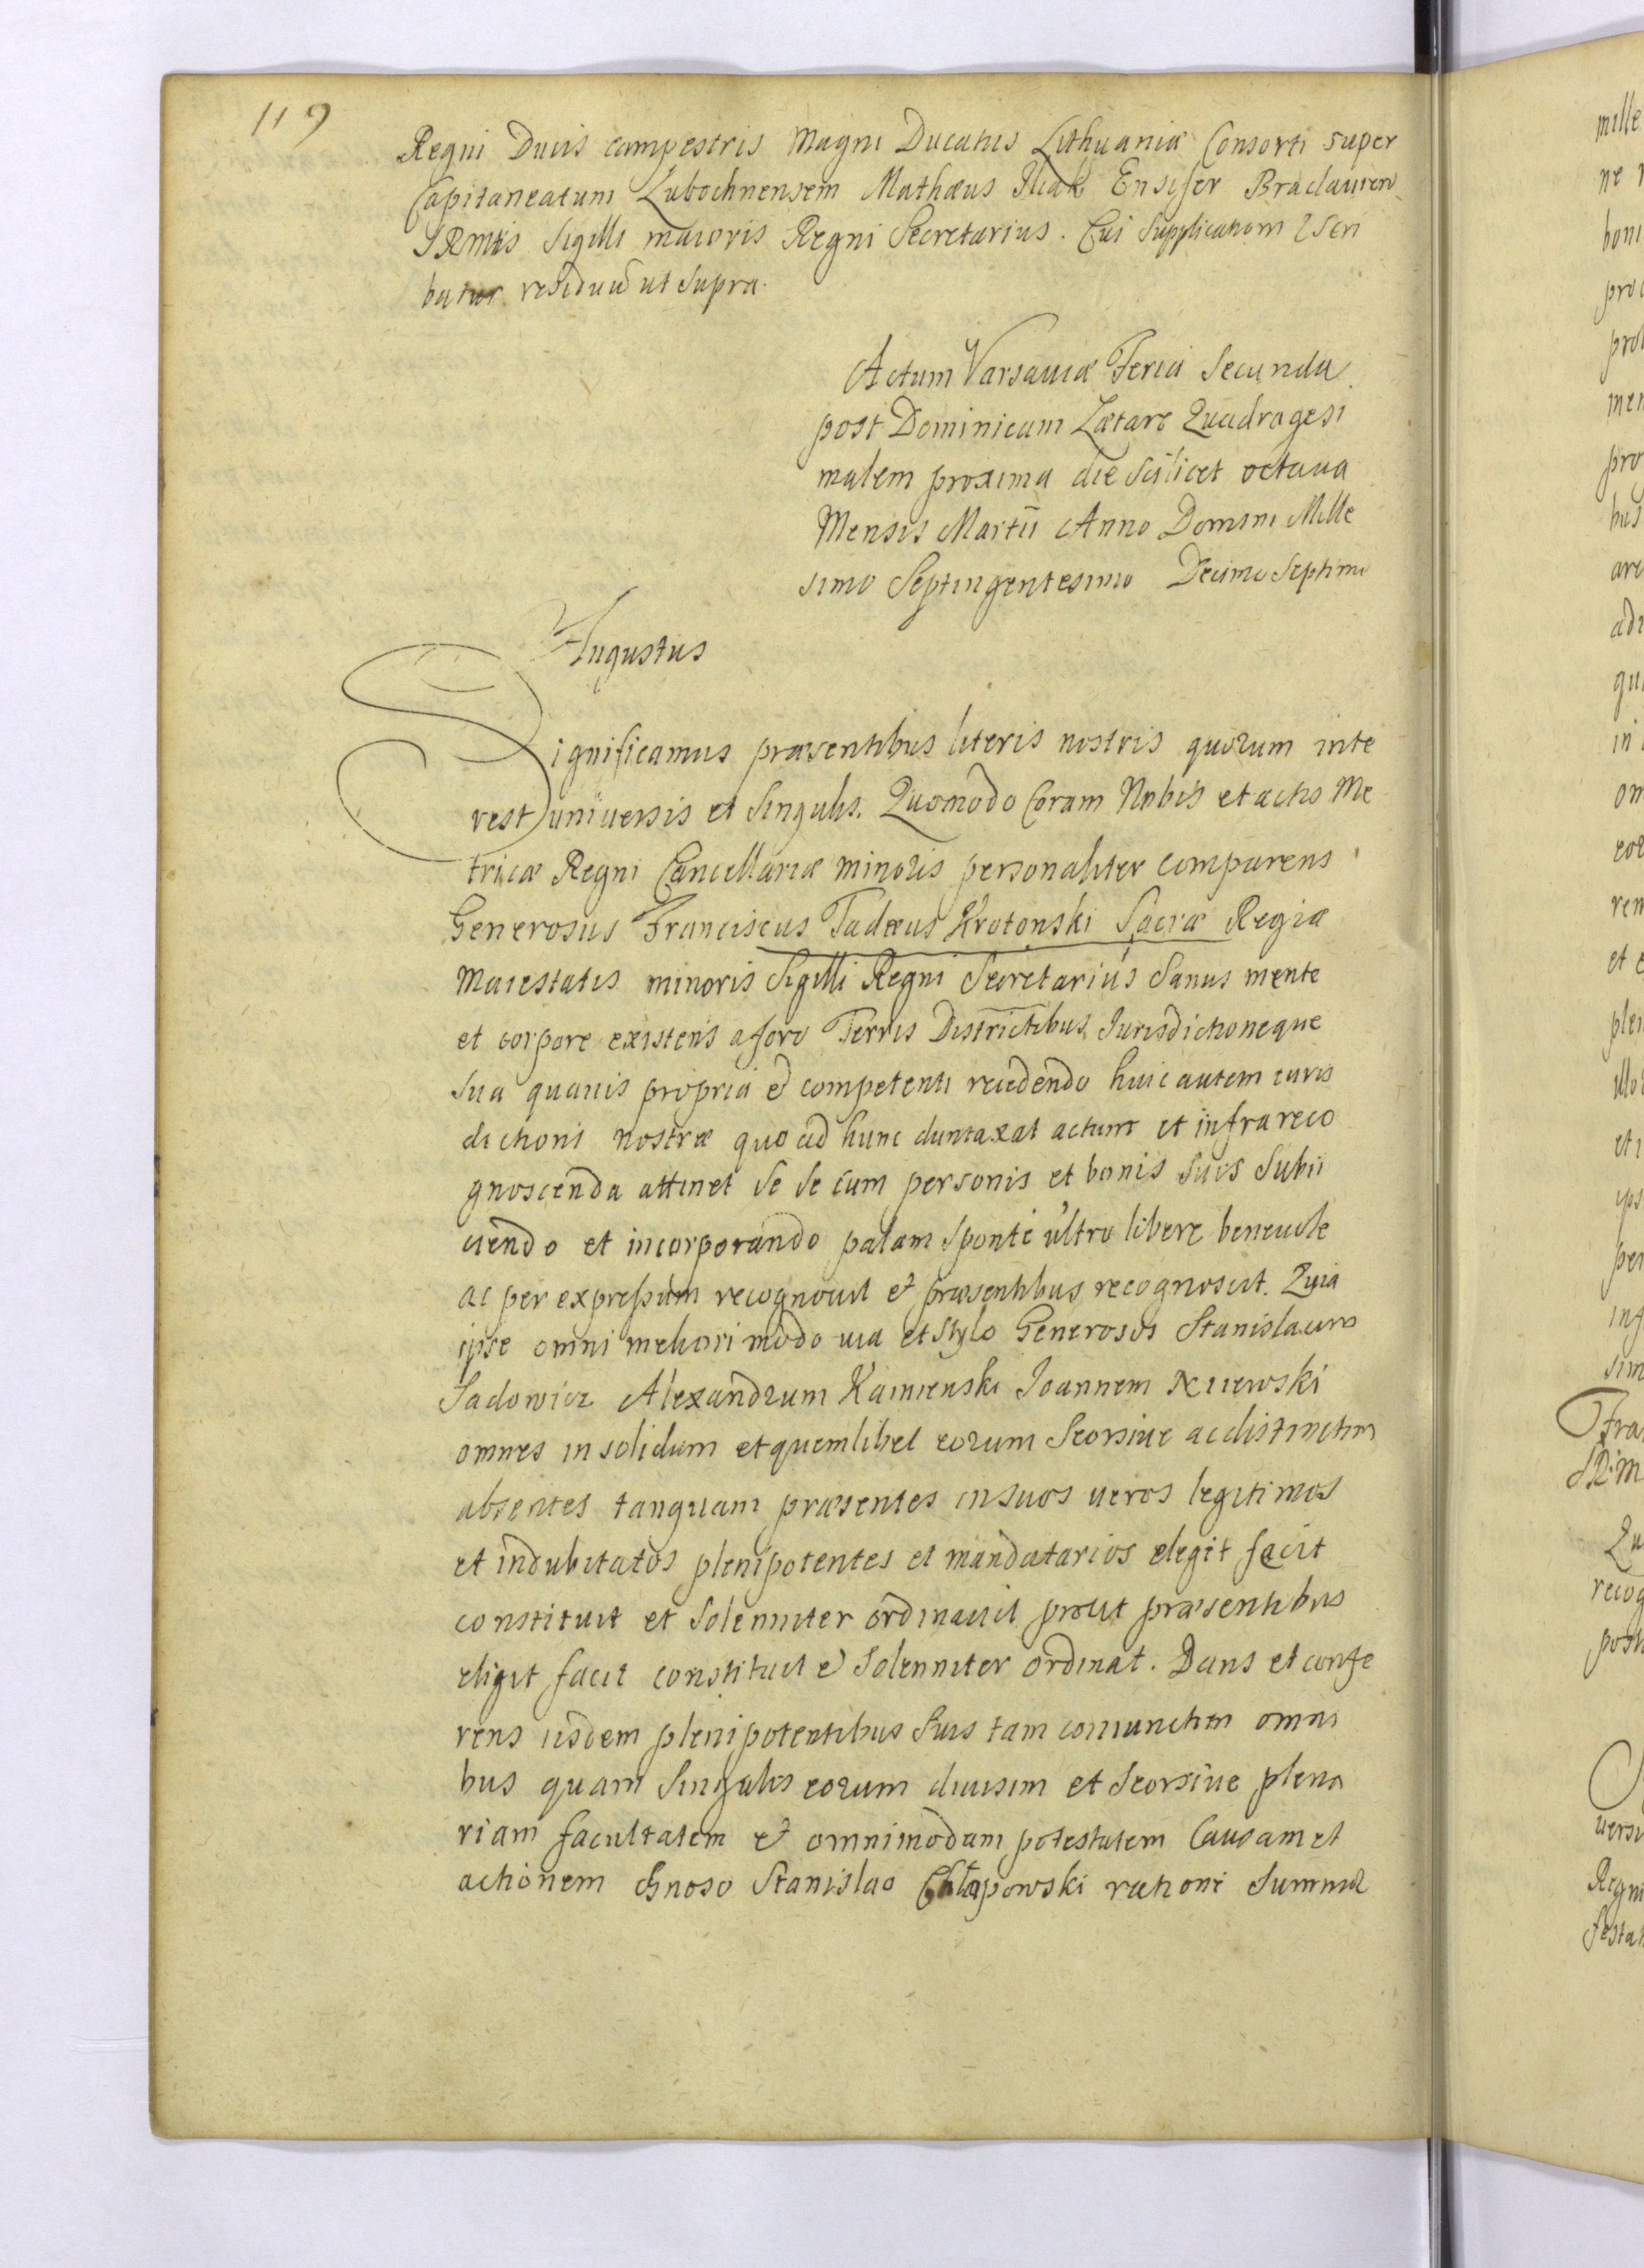 119
Regni Ducis campestris Magni Ducatus Lithuaniæ Consorti super
Capitaneatum Lubochnensem Mathæus Ensifer Braclavien
SRMtis Sigilli maioris Regni Secretarius. Cui Supplicationi
batur residuū ut supra.
Actum Varsaviæ Feria Secunda
post Dominicam Lætare Quadragesi
malem proxima die scilicet octava
Mensis Martii Anno Domini Mille
simo Septingentesimo Decimo Septimo
Augustus
Significamus præsentibus literis nostris quorum inte
rest universis et singulis. Quomodo Coram Nobis et actis Me
tricæ Regni Cancellariæ minoris personaliter comparens
Generosus Franciscus Tadæus Krotonski Sacræ Regiæ
Maiestatis minoris Sigilli Regni Secretarius Sanus mente
et corpore existens a foro Terris Districtibus Iurisdictioneque
sua quavis propria et competenti recedendo huic autem iuris
dictioni nostræ quo ad hunc duntaxat actum et infra reco
gnoscenda attinet se se cum personis et bonis suis subii
ciendo et incorporando palam sponte ultro libere benevole
ac per expressum recognovit et præsentibus recognoscit. Quia
ipse omni meliori modo via et stylo Generosos Stanislaum
Sadowicz Alexandrum Kamienski Ioannem
omnes in solidum et quemlibet eorum seorsive ac distinctim
absentes tanquam præsentes in suos veros legitimos
et indubitatos plenipotentes et mandatarios elegit fecit
constituit et solenniter ordinavit prout præsentibus
eligit facit constituit et solenniter ordinat. Dans et confe
rens iisdem plenipotentibus suis tam coniunctim omni
bus quam singulis eorum divisim et seorsive plena
riam facultatem et omnimodam potestatem Causam et
actionem Gnoso Stanislao Chłapowski ratione summæ